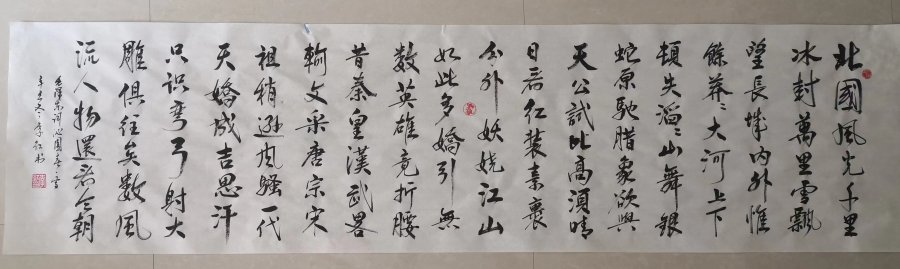 北國風光千里
冰封萬里雪飄
望長城内外惟
餘莽々大河上下
頓失滔々山舞銀
蛇原馳腊象欲與
天公試比高須晴
日看红装素裹
分外妖娆江山
如此多嬌引無
數英雄竞折腰
昔秦皇漢武畧
输文采唐宗宋
祖稍逊风騷一代
天嬌成吉思汗
只识弯弓射大
雕俱往矣數風
流人物還看今朝
毛澤东词沁園春雪
辛丑